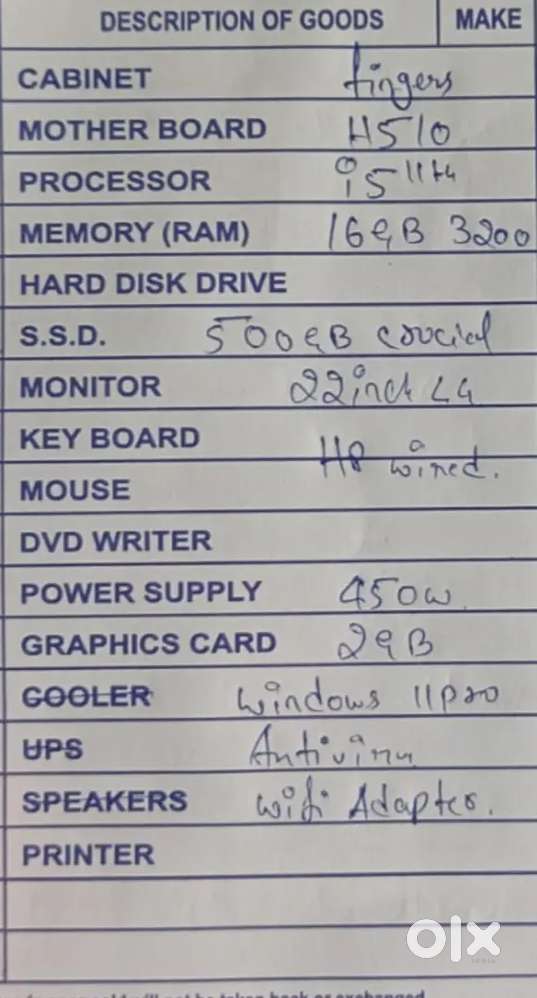 DESCRIPTION OF GOODS MAKE
CABINET fingers
MOTHER BOARD H510
PROCESSOR i5 11th
MEMORY (RAM) 16GB 3200
HARD DISK DRIVE
S.S.D. 500GB crucial
MONITOR 22inch LG
KEY BOARD
HP wired.
MOUSE
DVD WRITER
POWER SUPPLY 450w
GRAPHICS CARD 2GB
COOLER windows 11pro
UPS Antiviru
SPEAKERS wifi Adapter.
PRINTER
olx